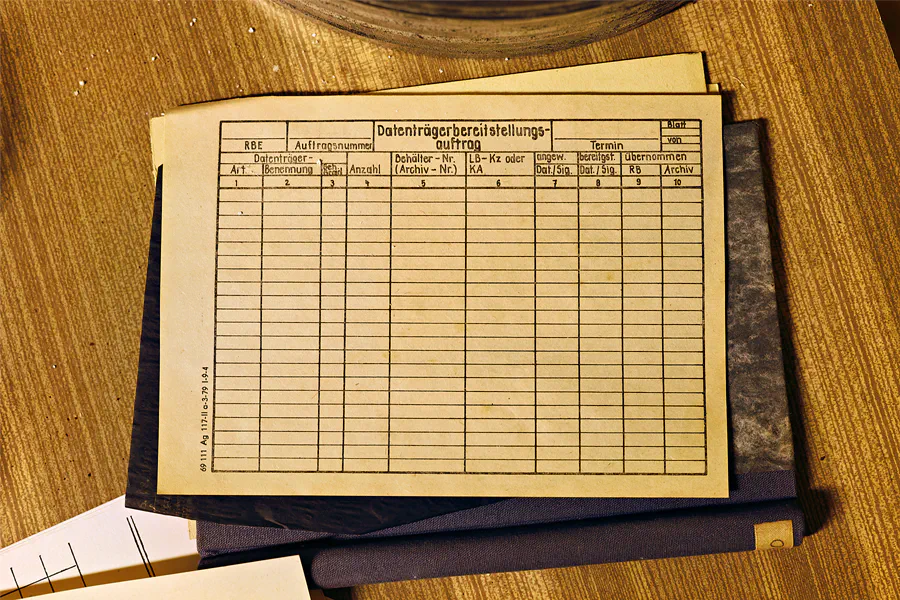 Datenträgerbereitstellungs-
auftrag
Blatt
von
RBE
Auftragsnummer
Termin
Datenträger-
Art
Benennung
Anzahl
Behälter-Nr.
(Archiv-Nr.)
LB-Kz oder
KA
angew.
Dat./Sig.
bereitgst.
Dat./Sig.
übernommen
RB
Archiv
1 2 3 4 5 6 7 8 9 10
69 111 Ag 117-II a-3-79 I-9-4